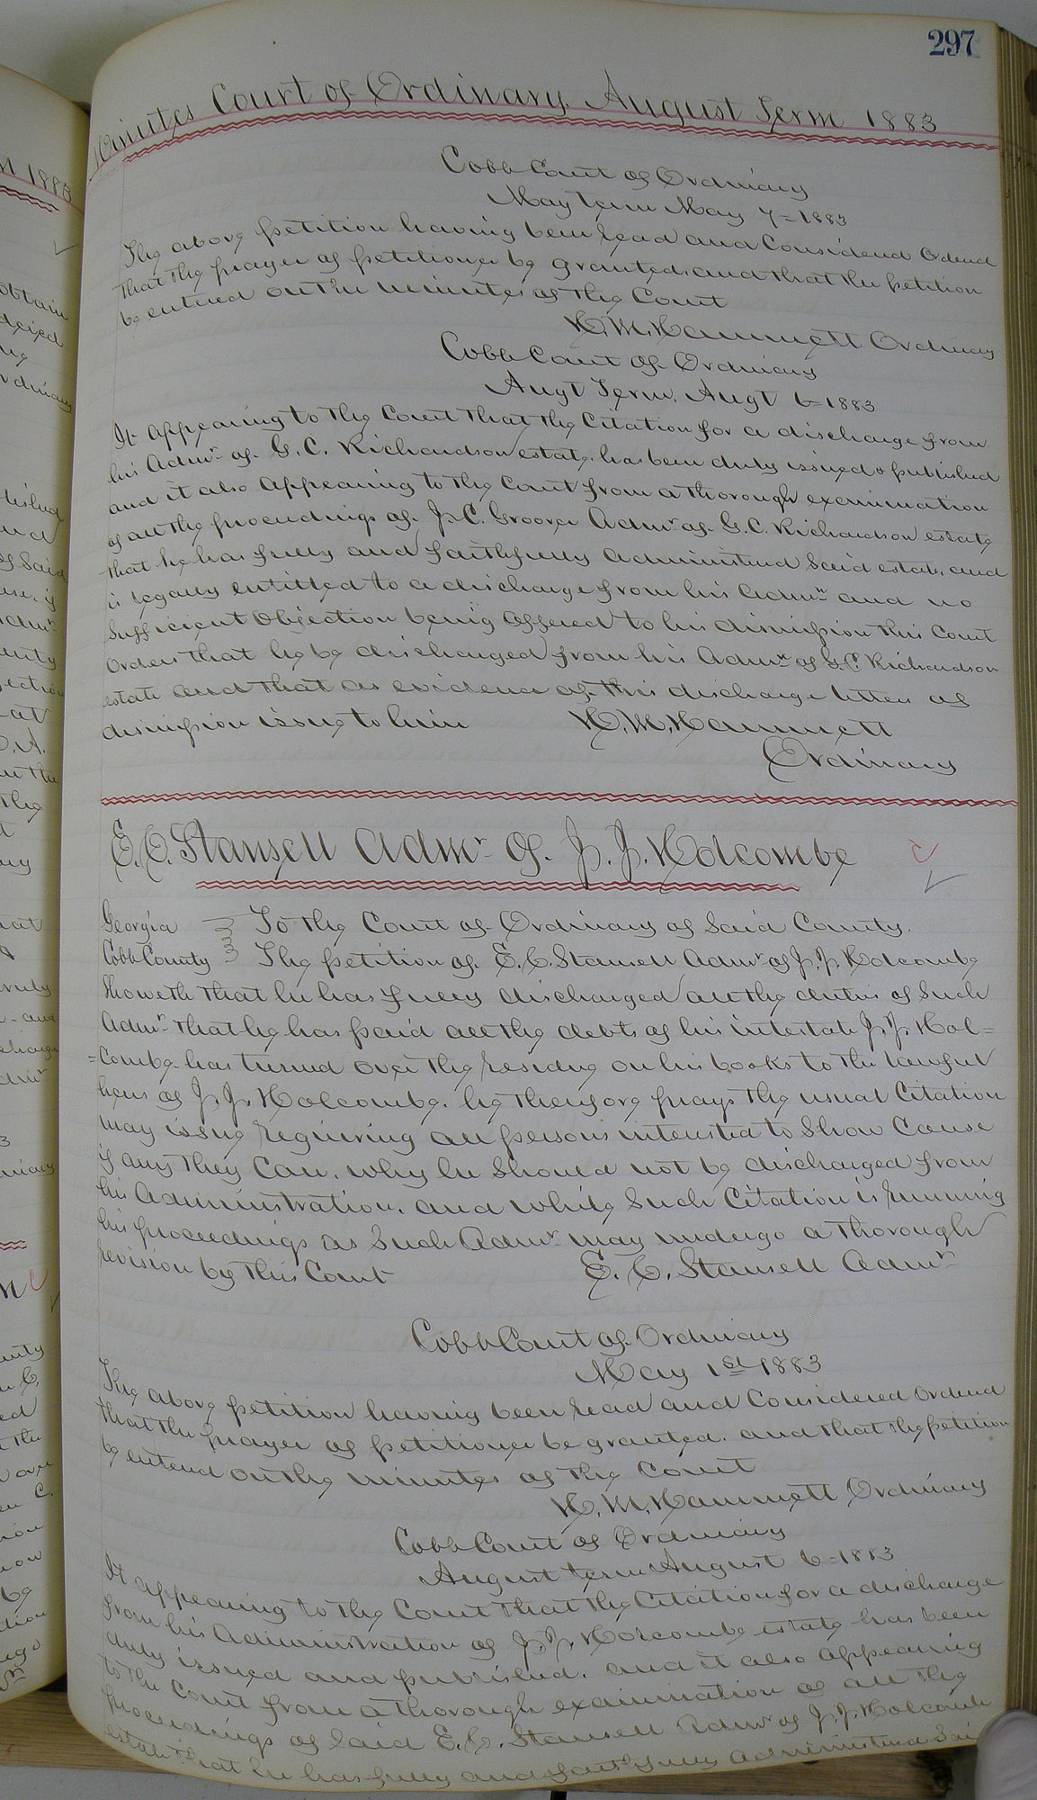 297
Minutes Court of Ordinary August Term 1883
Cobb Court of Ordinary
May term May 7= 1883
The above petition having been read and Considered Ordered
that the prayer of petitioner be granted and that the petition
be entered on the minutes of the Court
H. M. Hammett Ordinary
Cobb Court of Ordinary
Augt Term. Augt 6= 1883
It appearing to the Court that the Citation for a discharge from
his Admr. of G. C. Richardson estate has been duly issued & published
and it also appearing to the Court from a thorough examination
of all the proceedings of J. C. Groover Admr of G. C. Richardson estate
that he has fully and faithfully administered said estate and
is legally entitled to a discharge from his Admn and no
sufficient Objection being offered to his dismission this Court
Orders that he be discharged from his Admn of G. C. Richardson
estate and that as evidence of this discharge letters of
dismission issue to him H. M. Hammett
Ordinary
E. C. Stansell Admr. of J. J. Holcombe
Georgia To the Court of Ordinary of Said County.
Cobb County The petition of E. C. Stansell Admr of J. J. Holcombe
Showeth that he has fully discharged all the duties of Such
Admr. that he has paid all the debts of his intestate J. J. Hol=
=combe has turned over the residue on his books to the lawful
heirs of J. J. Holcombe. he therefore prays the usual Citation
may issue requiring all persons interested to Show Cause
if any they Can. why he Should not be discharged from
his Administration. and while Such Citation is running
his proceedings as Such Admr may undergo a thorough
revision by this Court E. C. Stansell Admr
Cobb Court of Ordinary
May 1st 1883
The above petition having been read and Considered Ordered
that the prayer of petitioner be granted. and that the petition
be entered on the minutes of the Court
H. M. Hammett Ordinary
Cobb Court of Ordinary
August term August 6= 1883
It appearing to the Court that the Citation for a discharge
from his Administration of J. J. Holcombe estate has been
duly issued and published. and it also appearing
to the Court from a thorough examination of all the
proceedings of Said E. C. Stansell Admr of J. J. Holcomb
estate that he has fully and faithfully administered Sai